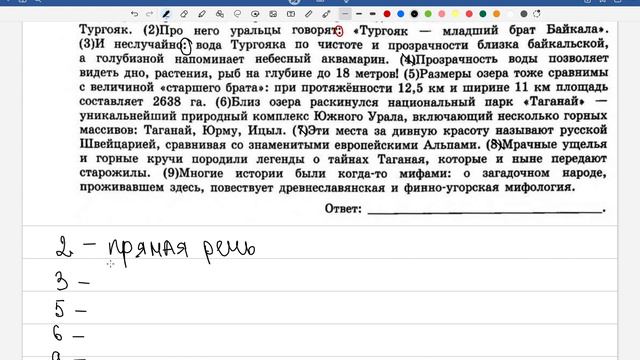 Тургояк. (2)Про него уральцы говорят: «Тургояк — младший брат Байкала».
(3)И неслучайно: вода Тургояка по чистоте и прозрачности близка байкальской,
а голубизной напоминает небесный аквамарин. (4)Прозрачность воды позволяет
видеть дно, растения, рыб на глубине до 18 метров! (5)Размеры озера тоже сравнимы
с величиной «старшего брата»: при протяжённости 12,5 км и ширине 11 км площадь
составляет 2638 га. (6)Близ озера раскинулся национальный парк «Таганай» —
уникальнейший природный комплекс Южного Урала, включающий несколько горных
массивов: Таганай, Юрму, Ицыл. (7)Эти места за дивную красоту называют русской
Швейцарией, сравнивая со знаменитыми европейскими Альпами. (8)Мрачные ущелья
и горные кручи породили легенды о тайнах Таганая, которые и ныне передают
старожилы. (9)Многие истории были когда-то мифами: о загадочном народе,
проживавшем здесь, повествует древнеславянская и финно-угорская мифология.
Ответ:
2 – прямая речь
3 –
5 –
6 –
9 –